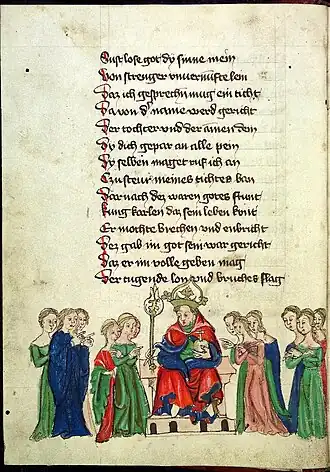 Sust lose got dy sinne mein
Von strenger unvernufte lein
Daz ich gesprechn mug ein ticht
Da von dˢ name werd gericht
Der tochter und der amen dem
Dy dich gepar an alle pein
Dy selben maget ruf ich an
Czu steur meines tichtes ban
Dar nach dez waren gotes frunt
King karlen daz sein leben kunt
Er mochte brechen und enbricht
Dez gab im got sein war gericht
Daz er im volle geben mag
Der tugende lon und bruches slag